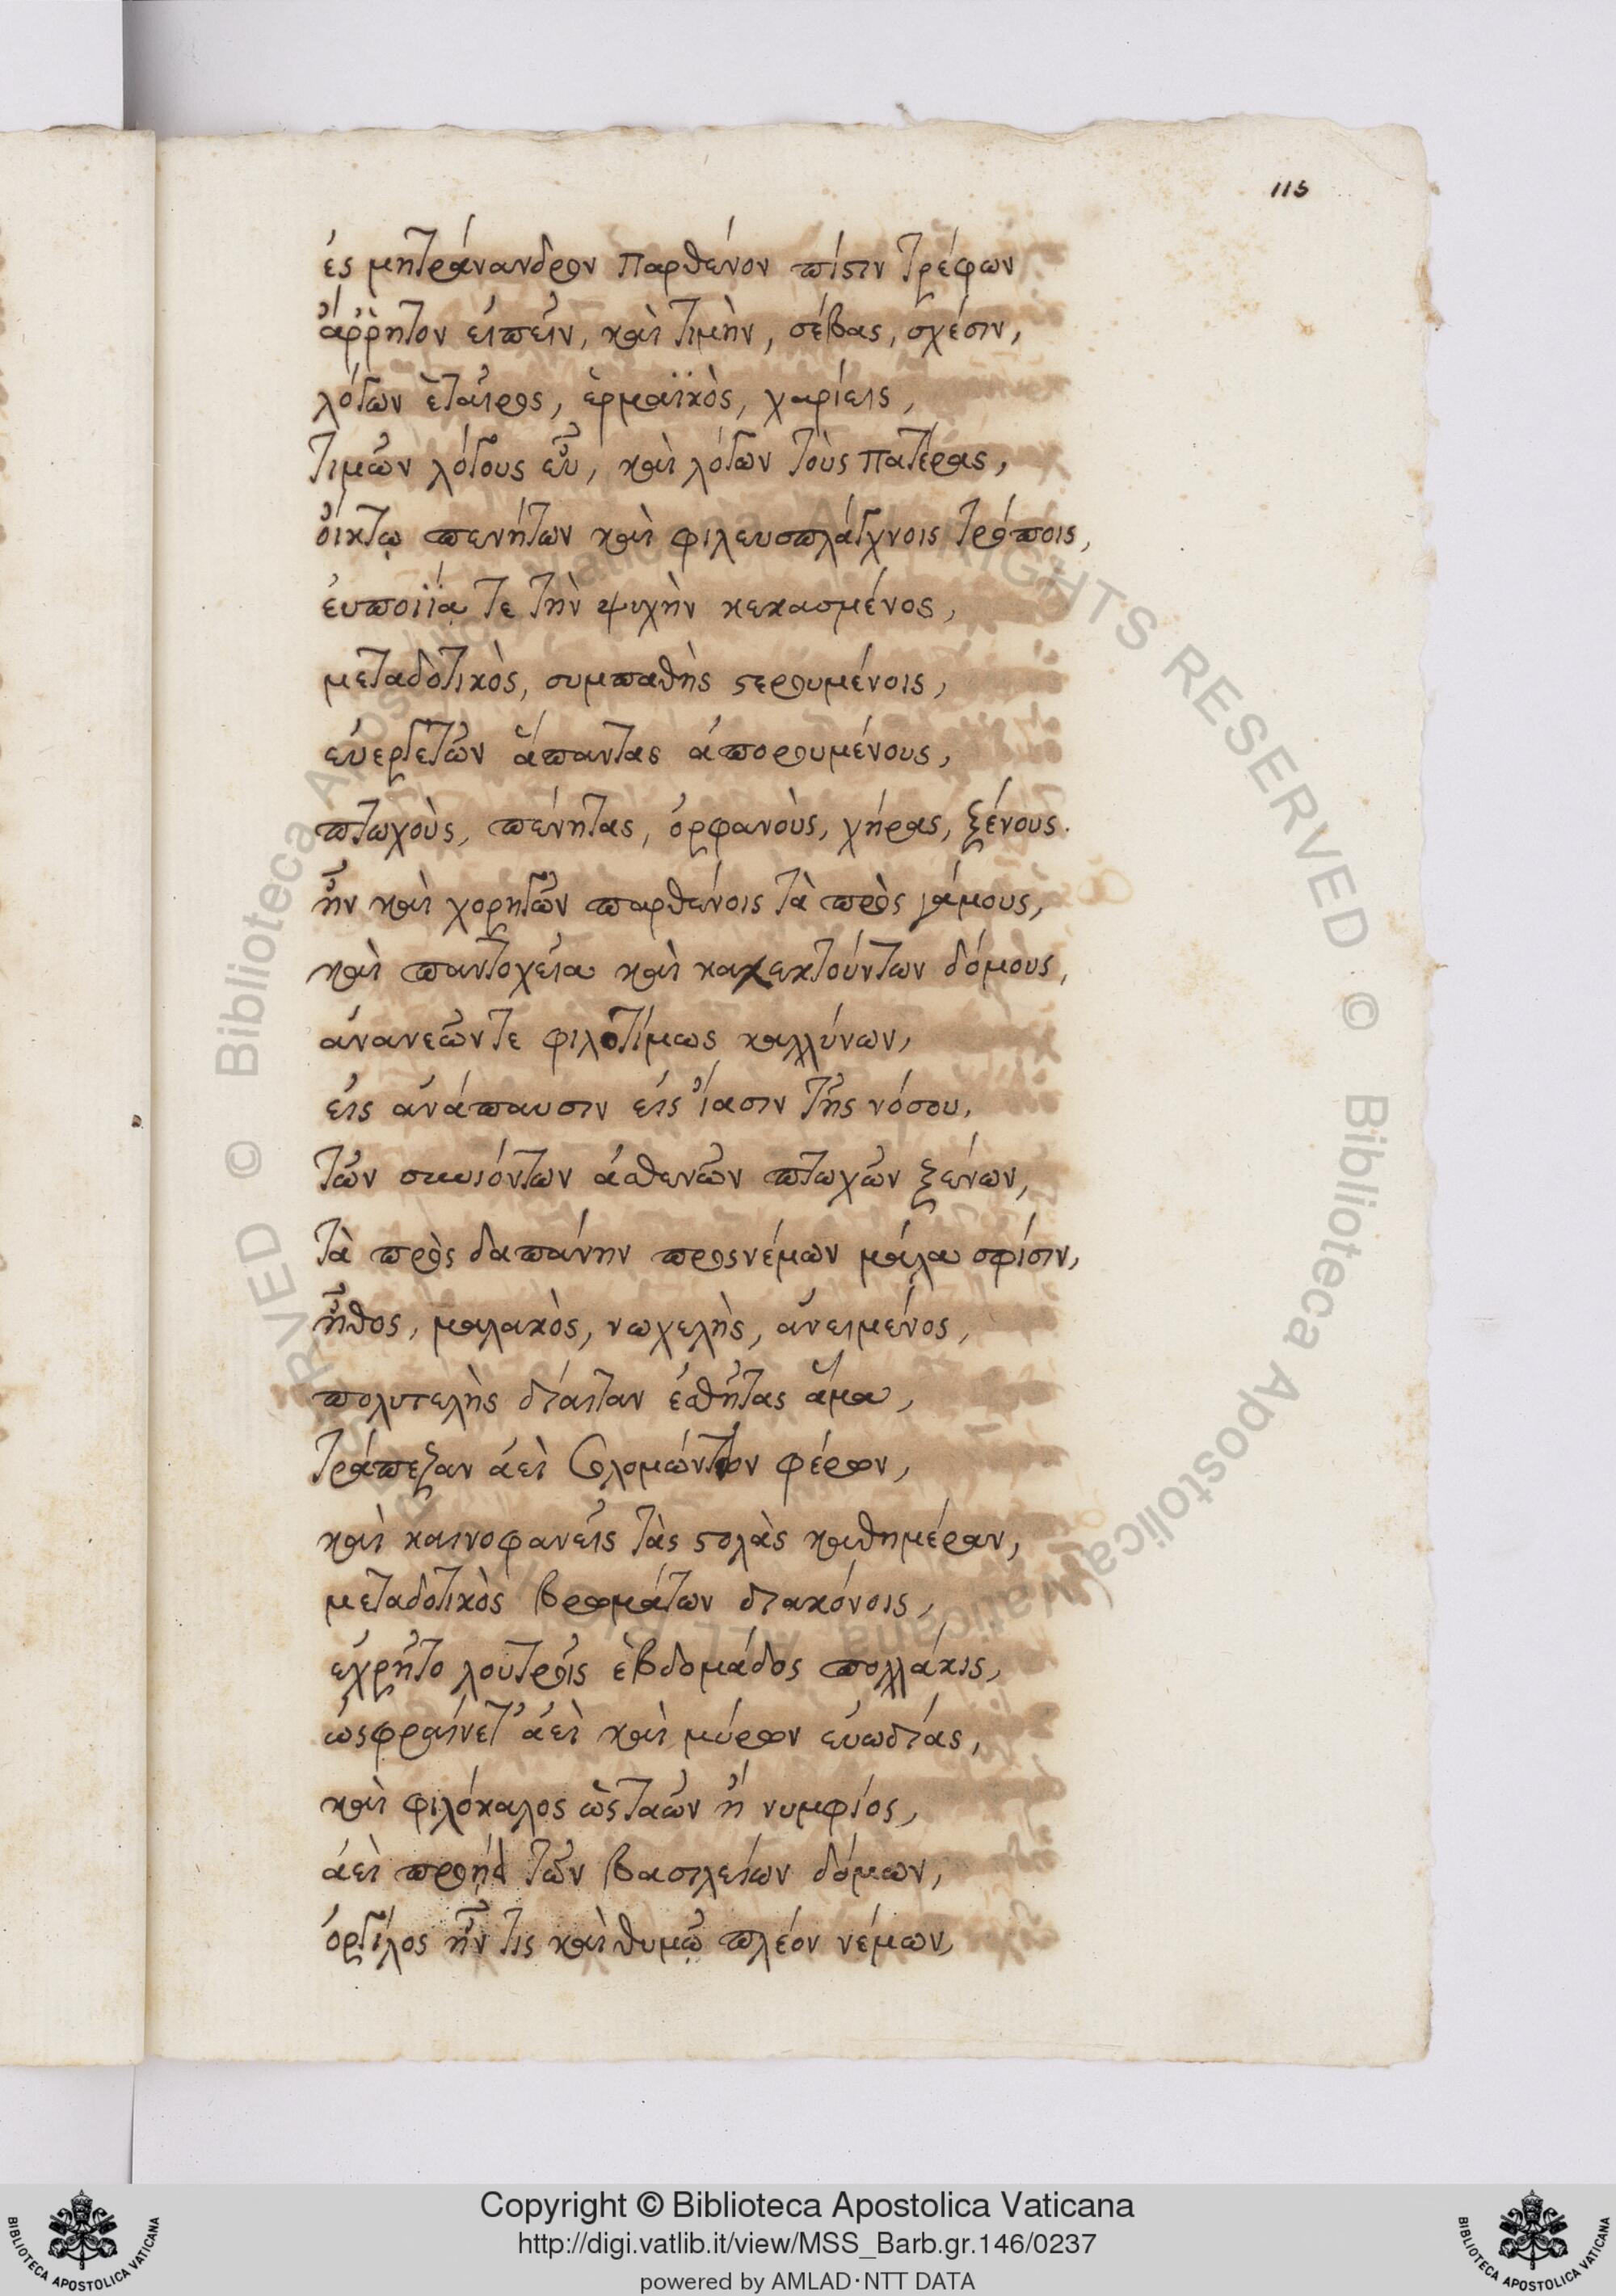 115
ἐς μητράνανδρον παρθένον πίστιν τρέφων
ἄῤῥητον εἰπεῖν, καὶ τιμὴν, σέβας, σχέσιν,
λόγων ἑταῖρος, ἑρμαϊκὸς, χαρίεις,
τιμῶν λόγους εὖ, καὶ λόγων τοὺς πατέρας,
οἴκτῳ πενήτων καὶ φιλευσπλάγχνοις τρόποις,
ἐυποιΐᾳ τε τὴν ψυχὴν κεκασμένος,
μεταδοτικὸς, συμπαθὴς στερουμένοις,
εὐεργετῶν ἅπαντας ἀπορουμένους,
πτωχοὺς, πένητας, ὀρφανοὺς, χήρας, ξένους.
ἦν καὶ χορηγῶν παρθένοις τὰ πρὸς γάμους,
καὶ παντοχεῖα καὶ καχεκτούντων δόμους,
ἀνανεῶν τε φιλοτίμως καλλύνων,
εἰς ἀνάπαυσιν εἰς ἴασιν τῆς νόσου,
τῶν συνιόντων ἀσθενῶν πτωχῶν ξένων,
τὰ πρὸς δαπάνην προςνέμων μάλα σφίσιν,
ἦθος, μαλακὸς, νωχελὴς, ἀνειμένος,
πολυτελὴς δίαιταν ἐσθῆτας ἅμα,
τράπεζαν ἀεὶ Σολομώντιον φέρων,
καὶ καινοφανεῖς τὰς στολὰς καθημέραν,
μεταδοτικὸς βρωμάτων διακόνοις,
ἐχρῆτο λουτροῖς ἑβδομάδος πολλάκις,
ὠςφραίνετ' ἀεὶ καὶ μύρων εὐωδίας,
καὶ φιλόκαλος ὡς ταὼν ἢ νυμφίος,
ἀεὶ τῶν βασιλείων δόμων,
ὀργίλος ἦν τις καὶ θυμῷ πλέον νέμων,
© Biblioteca Apostolica Vaticana ALL RIGHTS RESERVED © Biblioteca Apostolica Vaticana ALL RIGHTS RESERVED
Copyright © Biblioteca Apostolica Vaticana
http://digi.vatlib.it/view/MSS_Barb.gr.146/0237
powered by AMLAD·NTT DATA
BIBLIOTECA APOSTOLICA VATICANA
BIBLIOTECA APOSTOLICA VATICANA